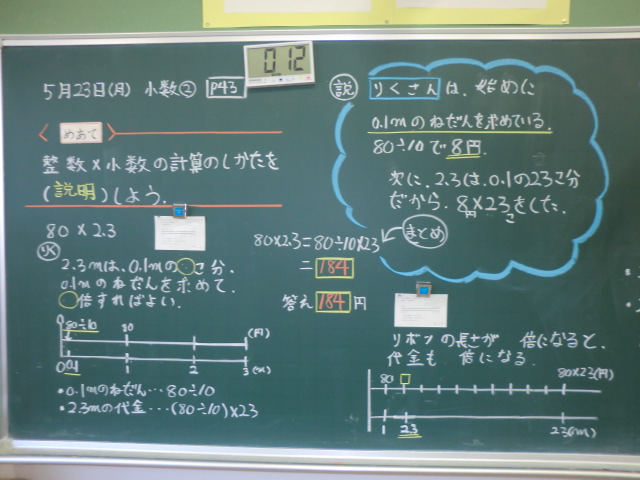 5月23日(月) 小数② P43
012
めあて
整数×小数の計算のしかたを
(説明)しよう.
80×2.3
2.3mは、0.1mの○こ分.
0.1mのねだんを求めて、
○倍すればよい.
80÷10
80
(円)
0 0.1 1 2 3(m)
・0.1mのねだん…80÷10
・2.3mの代金…(80÷10)×23
80×2.3=80÷10×23
=184
答え 184円
まとめ
説 りくさん は、始めに
0.1mのねだんを求めている.
80÷10で8円.
次に、2.3は、0.1の23こ分
だから、8円×23こをした.
リボンの長さが 倍になると、
代金も 倍になる.
80 □ 80×23(円)
1 2.3 23(m)